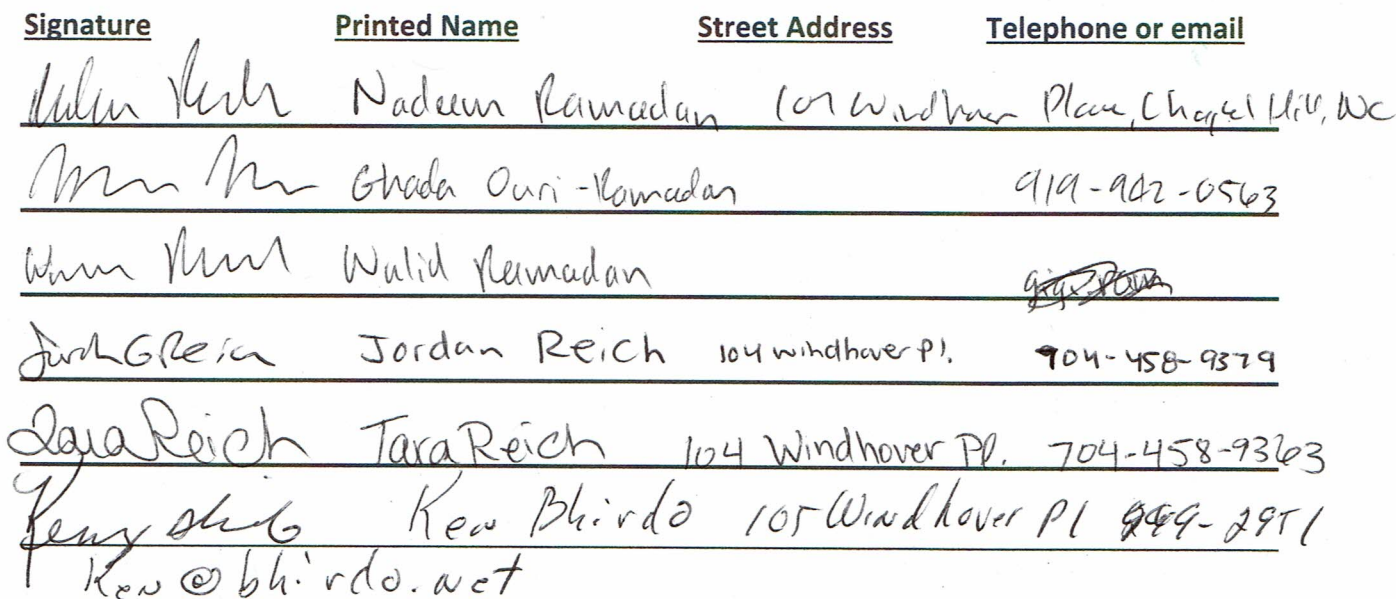 Signature Printed Name Street Address Telephone or email
Nadeem Ramadan 107 Windhover Place, Chapel Hill, NC
Ghada Ouri-Ramadan 919-942-0563
Walid Ramadan
Jordan G Reich Jordan Reich 104 windhover pl. 704-458-9379
Tara Reich Tara Reich 104 Windhover Pl. 704-458-9363
Ken Bhirdo 105 Windhover Pl -2951
Ken@bhirdo.net